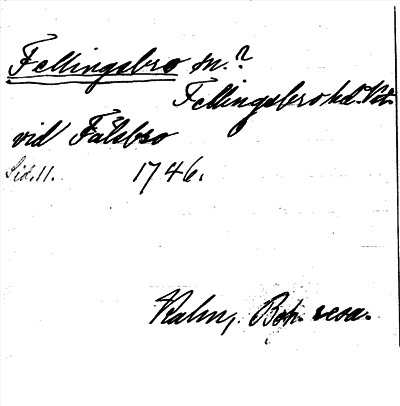 Fellingsbro sn.?
Fellingsbro hd. Vstm.
vid Fälsbro
Sid. 11. 1746.
Kalm, Boh. resa.